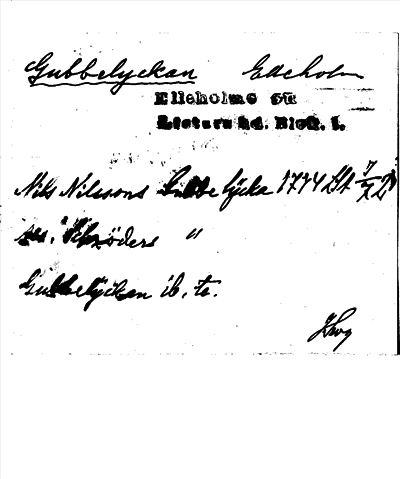 Gubbelyckan Elleholm
Elleholms sn
Listers hd. Blek. l.
Nils Nilssons Gubbelycka 1774 Lst 7/2 2
Schröders "
Gubbelyckan ib. to.